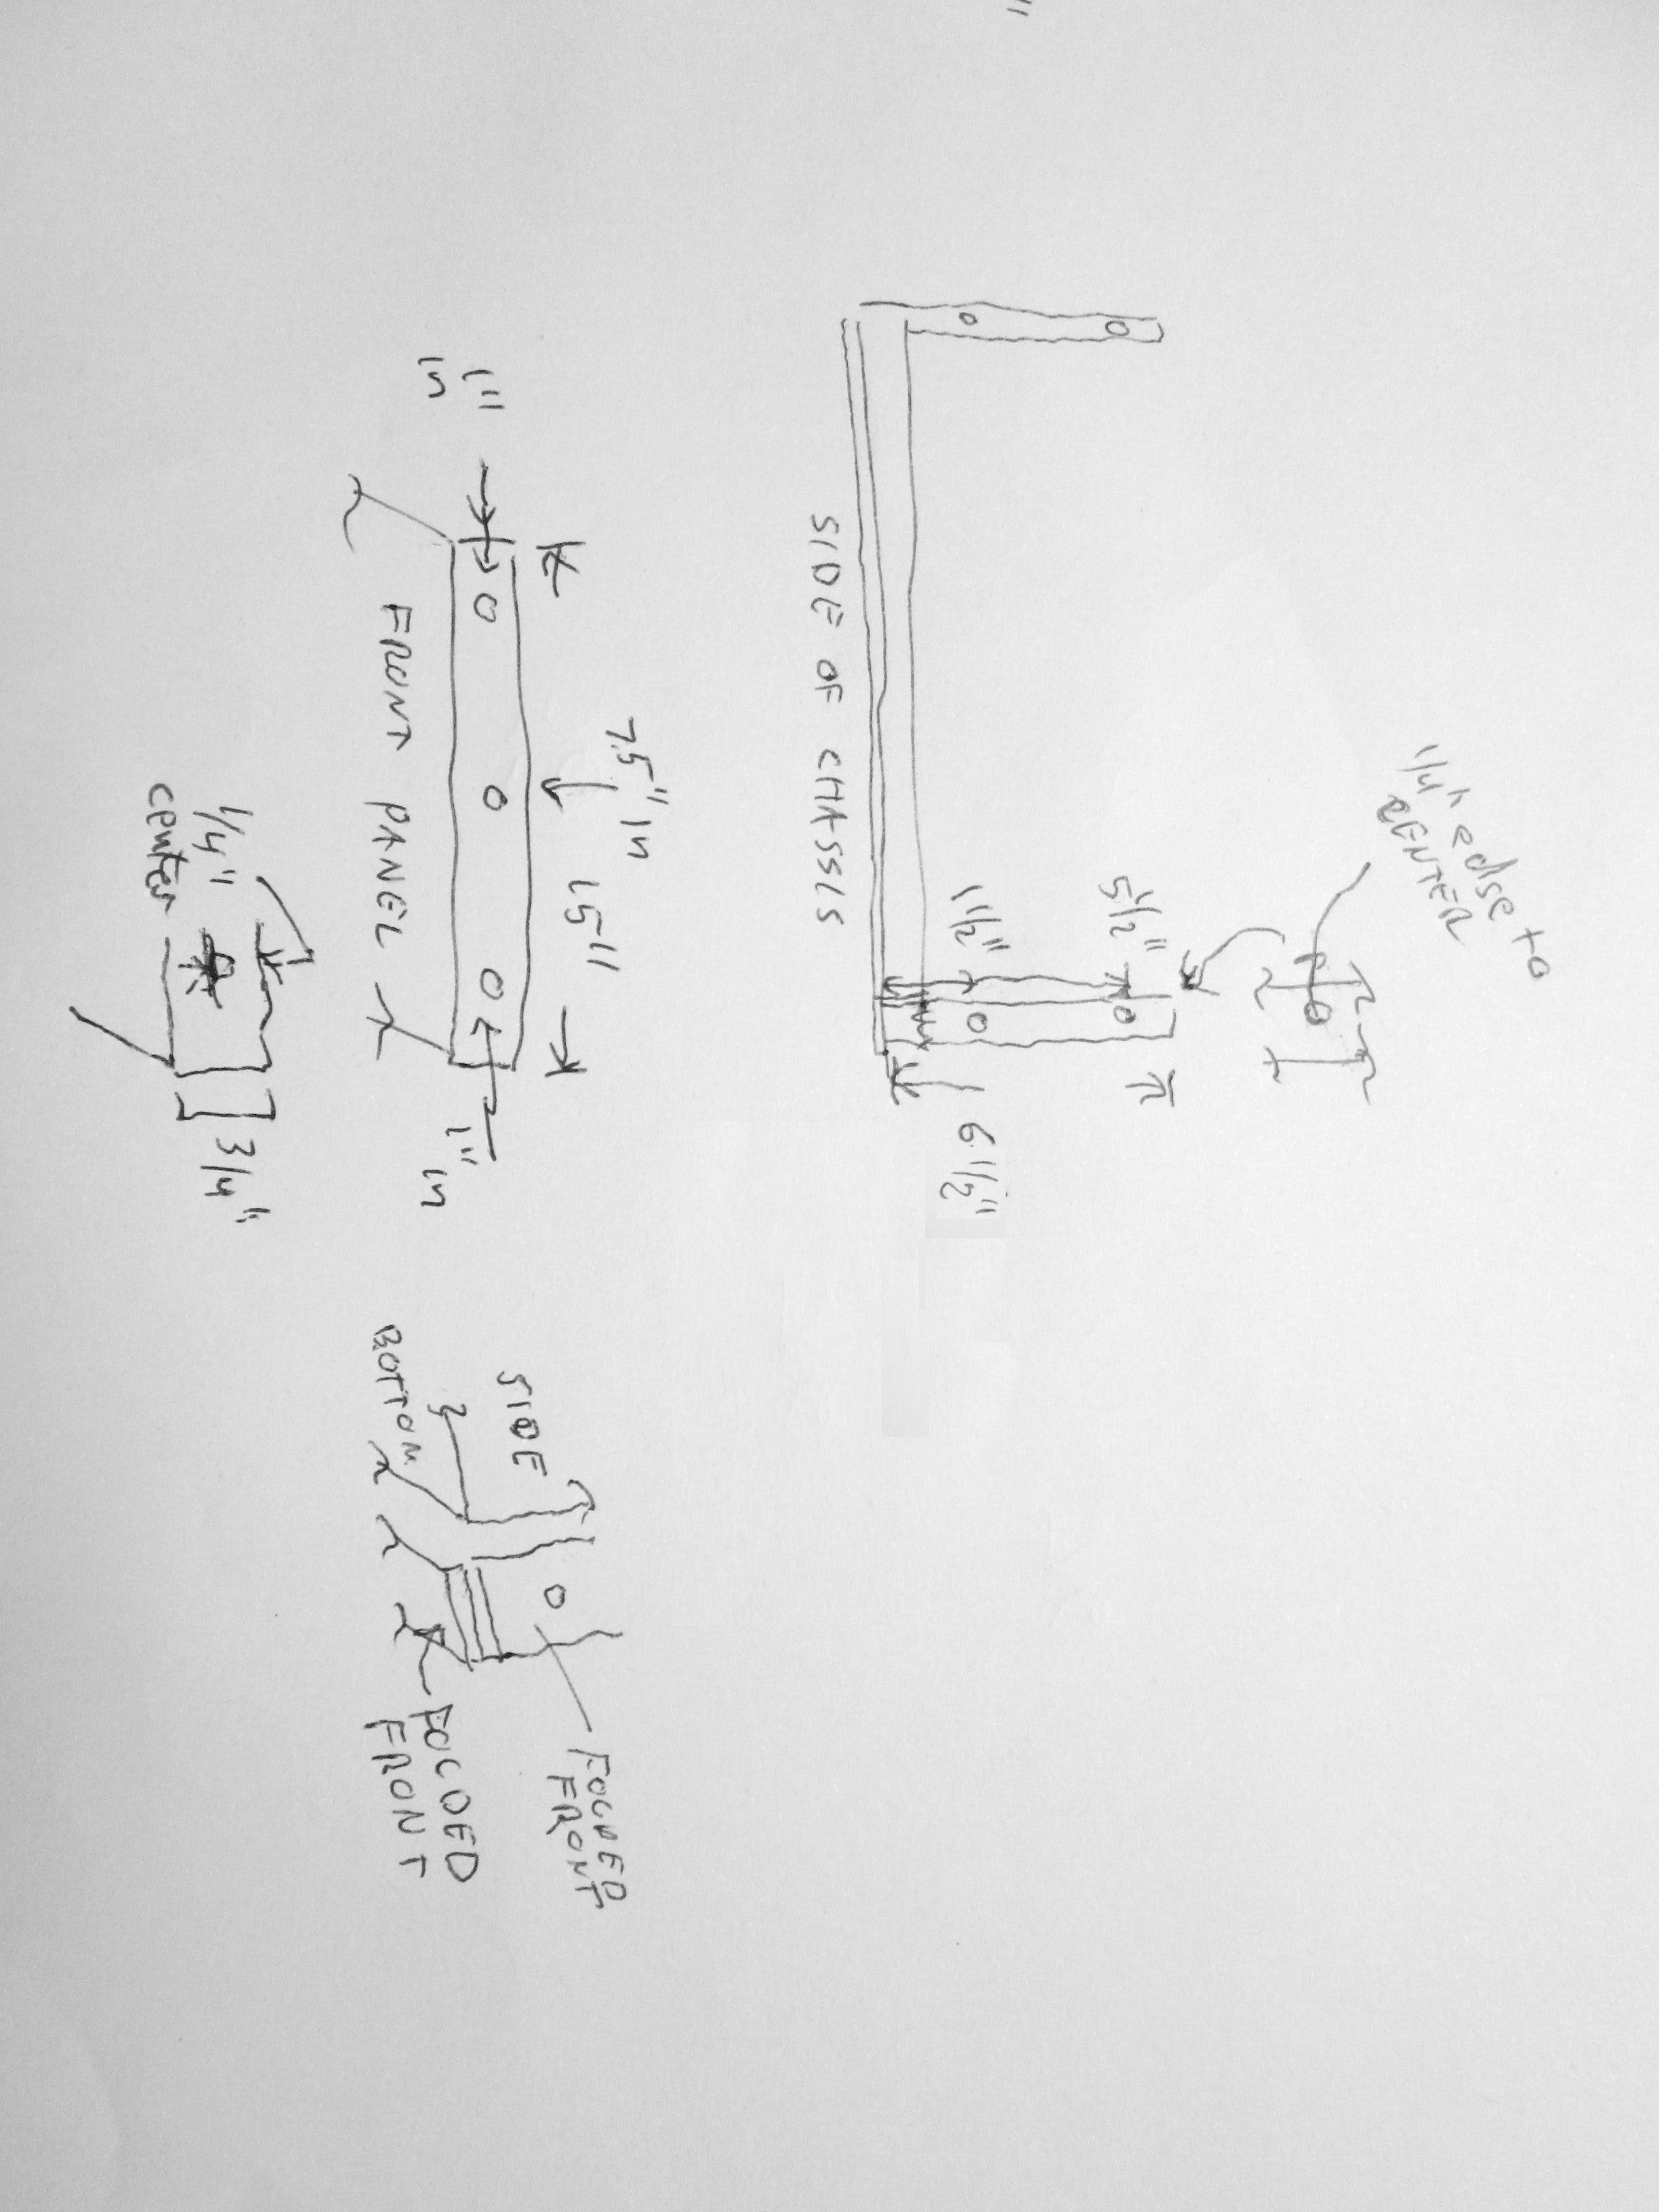 1/4" edge to
CENTER
5 1/2"
1 1/2"
6 1/2"
SIDE OF CHASSIS
7.5" IN
15"
1"
IN
1"
IN
FRONT PANEL
1/4"
center
3/4"
SIDE
BOTTOM
FOLDED
FRONT
FOLDED
FRONT